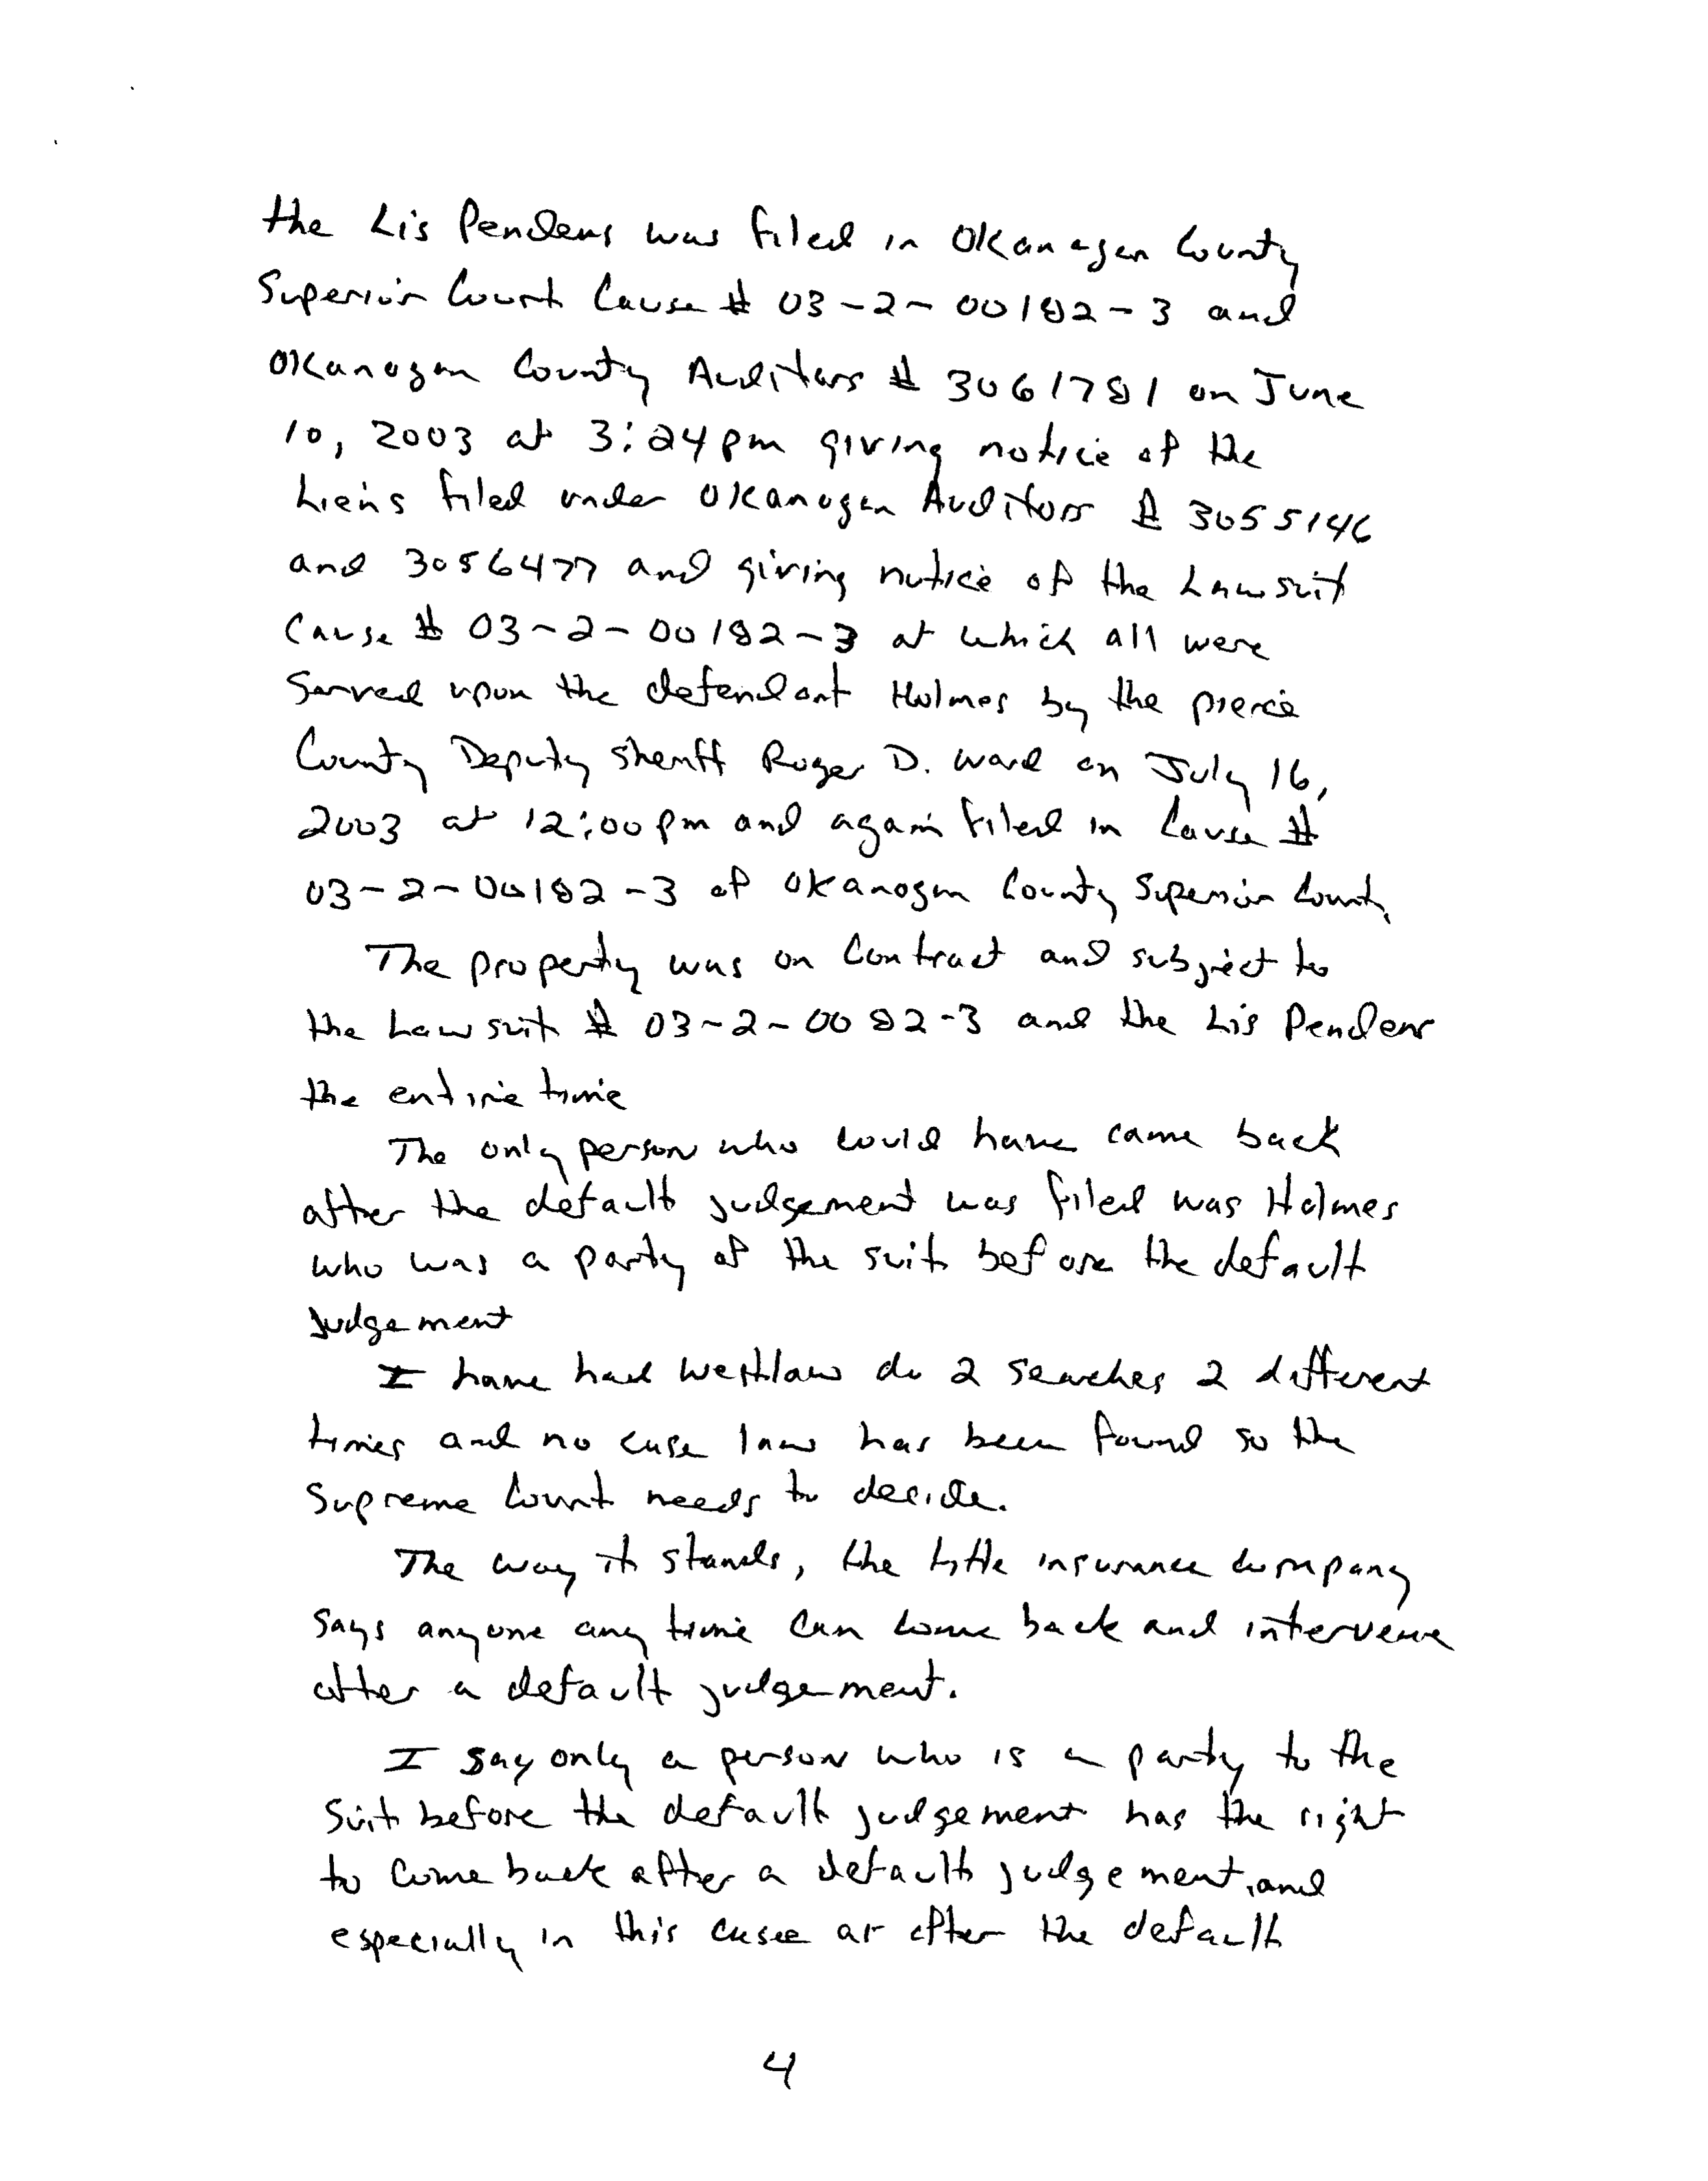 the Lis Pendens was filed in Okanagan County
Superior Court Cause # 03-2-00182-3 and
Okanogan County Auditors # 3061781 on June
10, 2003 at 3:24pm giving notice of the
Liens filed under Okanogan Auditors # 3055146
and 3056477 and giving notice of the Lawsuit
Cause # 03-2-00182-3 at which all were
Served upon the defendant Holmes by the pierce
County Deputy Sheriff Roger D. Ward on July 16,
2003 at 12:00pm and again filed in Cause #
03-2-00182-3 of Okanogan County Superior Court.
The property was on Contract and subject to
the Lawsuit # 03-2-0082-3 and the Lis Pendens
the entire time
The only person who could have came back
after the default judgement was filed was Holmes
who was a party of the suit before the default
judgement
I have had Westlaw do 2 searches 2 different
times and no case law has been found so the
Supreme Court needs to decide.
The way it stands, the title insurance company
says anyone any time can come back and intervene
after a default judgement.
I say only a person who is a party to the
suit before the default judgement has the right
to come back after a default judgement, and
especially in this casee as after the default
4